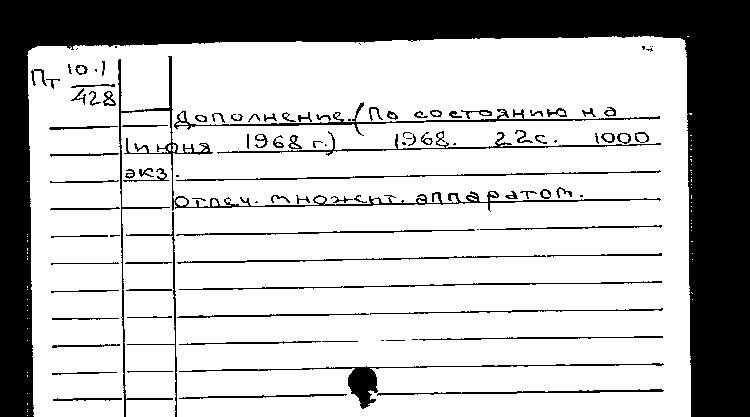 Пт 10.1
428
Дополнение. (По состоянию на
1 июня 1968 г.) 1968. 22с. 1000
экз.
отпеч. множит. аппаратом.